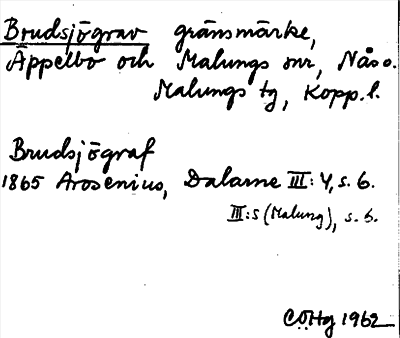 Brudsjögrav gränsmärke,
Äppelbo och Malungs snr, Nås o.
Malungs tg, Kopp. l.
Brudsjögraf
1865 Arosenius, Dalarne III: 4, s. 6.
III:5 (Malung), s. 6.
CÖHg 1962